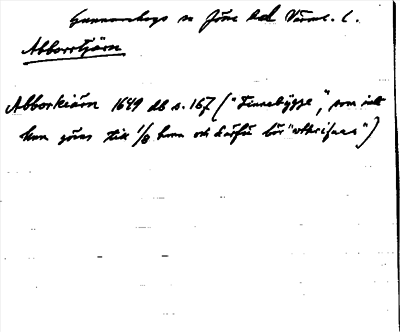 Gunnarskogs sn Jösse hd Värml. l.
Abborrtjärn
Abborkiärn 1649 db s. 167 ("Finnebygge", som icke
kan göras till 1/8 hmn och därför bör "vthrifuas")